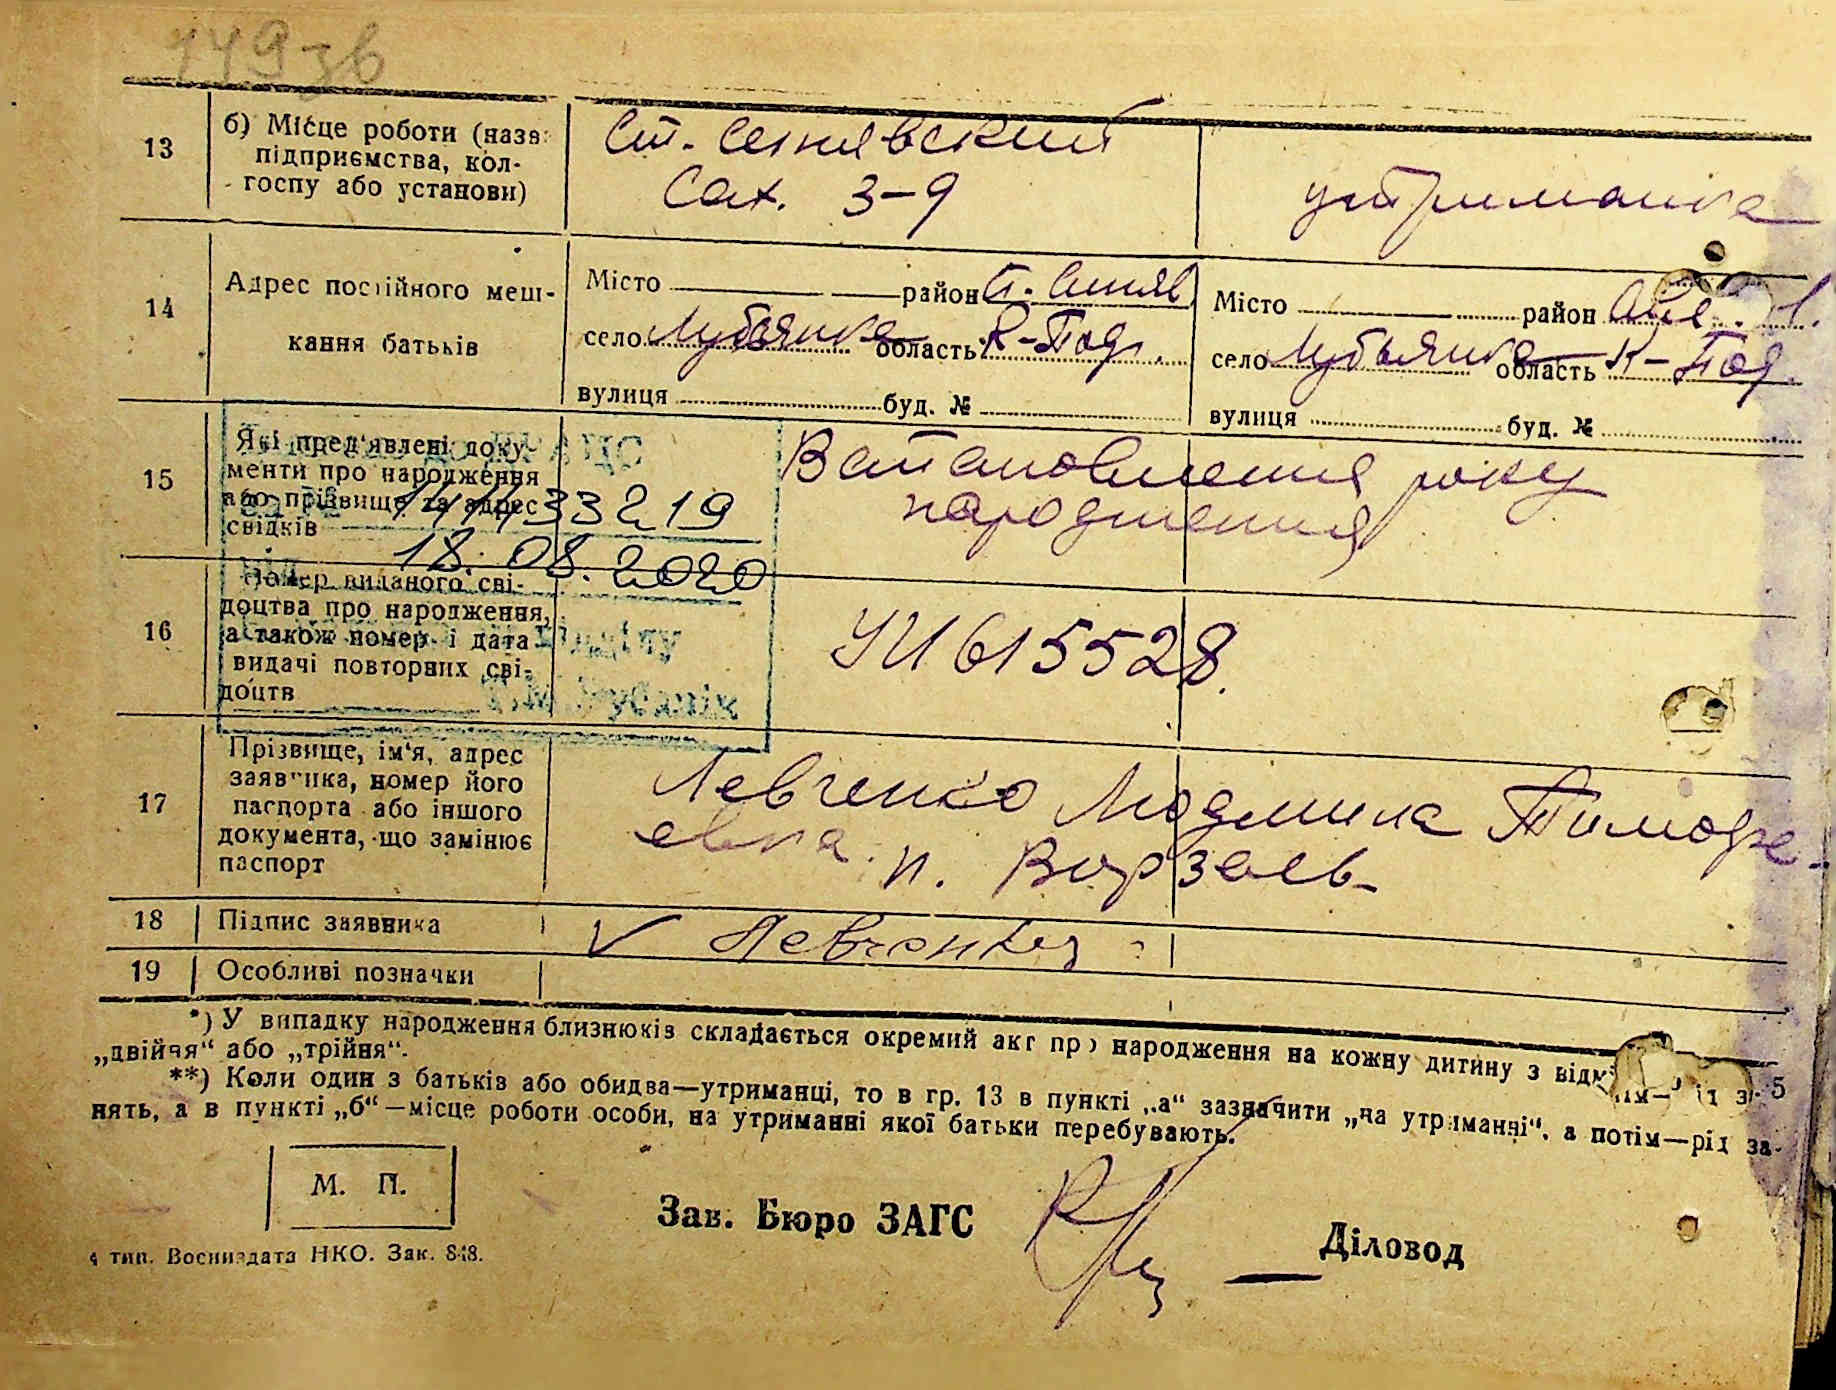 149зв
13
б) Місце роботи (назв
підприємства, кол-
госпу або установи)
Ст. Сенявский
Сах. З-д
утриманка
14
Адрес постійного меш-
кання батьків
Місто район Ст. Синяв
село Лубьянка область К-Под.
вулиця буд. №
Місто район
село Лубьянка область К-Под.
вулиця буд. №
15
Які пред'явлені доку-
менти про народження
або прізвище та адрес
свідків
Встановлення року
народження
РАЦС
1411433219
18.08.2020
відділу
16
Номер виданого сві-
доцтва про народження,
а також номер і дата
видачі повторних сві-
доцтв
УИ 615528.
17
Прізвище, ім'я, адрес
заявника, номер його
паспорта або іншого
документа, що замінює
паспорт
Левченко Людмила Тимофе-
евна. п. Ворзель
18
Підпис заявника
V Левченко
19
Особливі позначки
*) У випадку народження близнюків складається окремий акт про народження на кожну дитину з
„двійня“ або „трійня“.
**) Коли один з батьків або обидва—утриманці, то в гр. 13 в пункті „а“ зазначити „на утриманні“, а потім—рід за-
нять, а в пункті „б“—місце роботи особи, на утриманні якої батьки перебувають.
М. П.
Зав. Бюро ЗАГС
Діловод
4 тип. Воениздата НКО. Зак. 848.